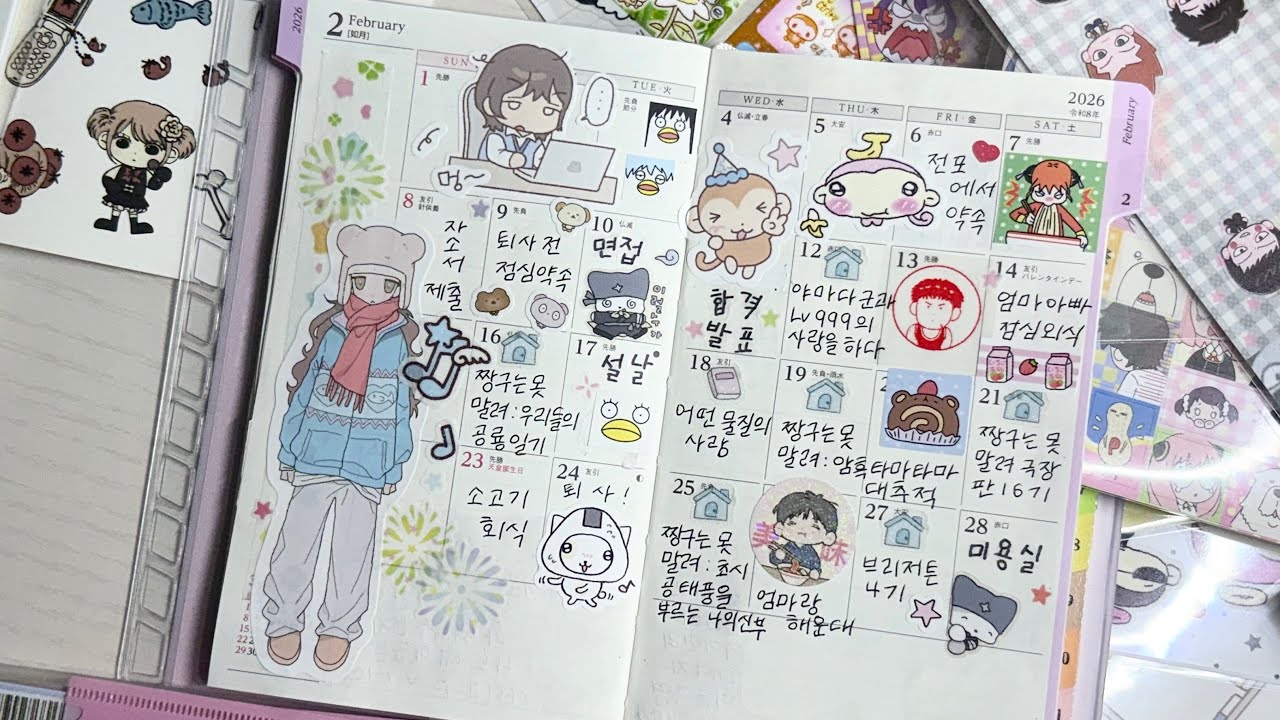 2026
2 February
[如月]
SUN
TUE・火
WED・水
THU・木
FRI・金
SAT・土
2026
令和8年
February
2
1 先勝
멍~
先負
節分
4 仏滅・立春
5 大安
6 赤口
전포
에서
약속
7 先勝
8 友引
針供養
자
소
서
제출
9 先負
퇴사 전
점심약속
10 仏滅
면접
합격
발표
12
야마다군과
Lv999의
사랑을 하다
13 先勝
14 友引
バレンタインデー
엄마아빠
점심외식
16
짱구는못
말려:우리들의
공룡일기
17 先勝
설날
18 友引
어떤 물질의
사랑
19 先負・雨水
짱구는못
말려:암흑타마타마
대추적
21
짱구는못
말려 극장
판16기
23 先勝
天皇誕生日
소고기
회식
24 友引
퇴사!
25
짱구는못
말려:초시
공태풍을
부르는 나의신부
美味
엄마랑
해운대
27
브리저튼
4기
28 赤口
미용실
1
8
15
22 23
29 30